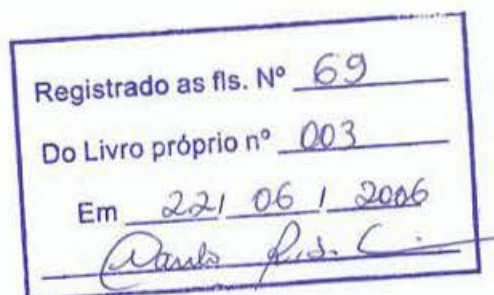 Registrado as fls. Nº 69
Do Livro próprio nº 003
Em 22/ 06 / 2006